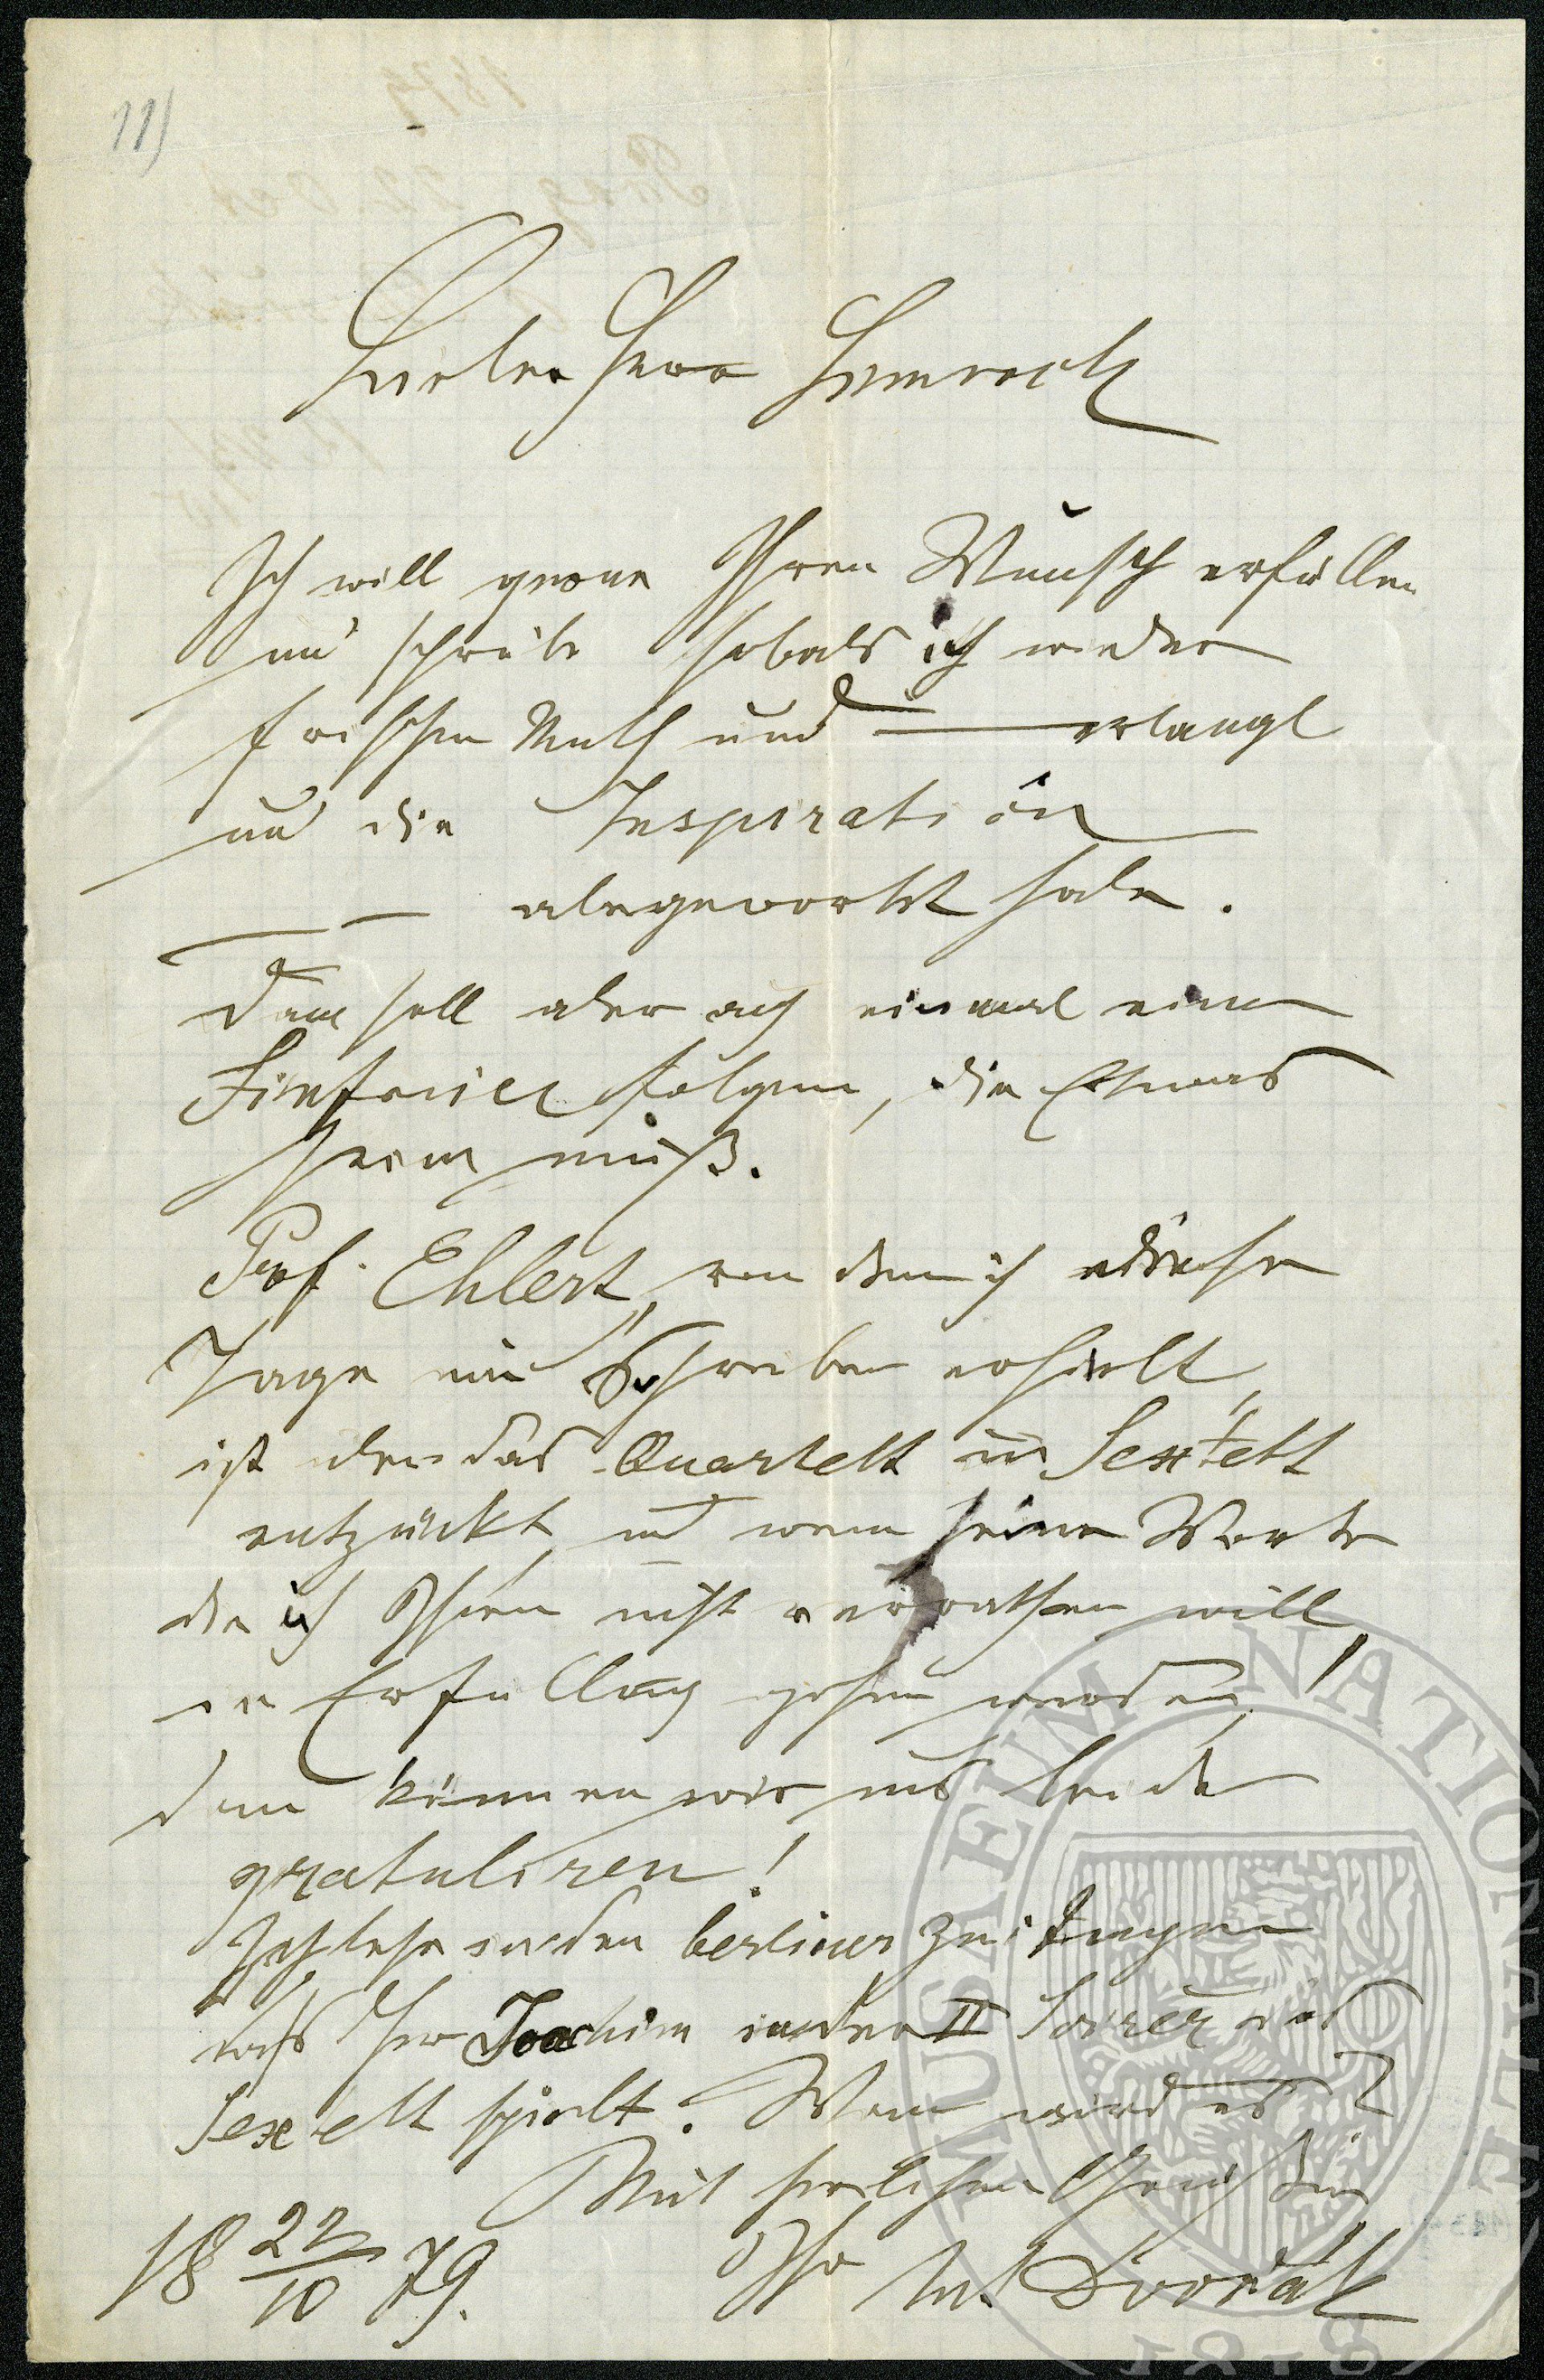 11)
Lieber Herr Simrock
Ich will gerne Ihren Wunsch erfüllen
und schreibe sobald ich wieder
frischen Muth und erlangt
und die Inspiration
abgewartet habe.
Dann soll aber auch einmal eine
Sinfonie folgen, die Etwas
sein muß.
Prof. Ehlert, von dem ich dieser
Tage ein Schreiben erhielt,
ist über das Quartett und Sextett
entzückt, und wenn seine Worte
die ich Ihnen nicht verrathen will,
in Erfüllung gehen werden!
dann können wir uns beide
gratuliren!
Ich lese in den berliner Zeitungen
daß Herr Joachim in der II Soireé das
Sextett spielt. Wann wird es?
Mit herzlichen Grüßen
Ihr Ant Dvořák
18 22/10 79.
MUSAEUM NATIONALE
1818